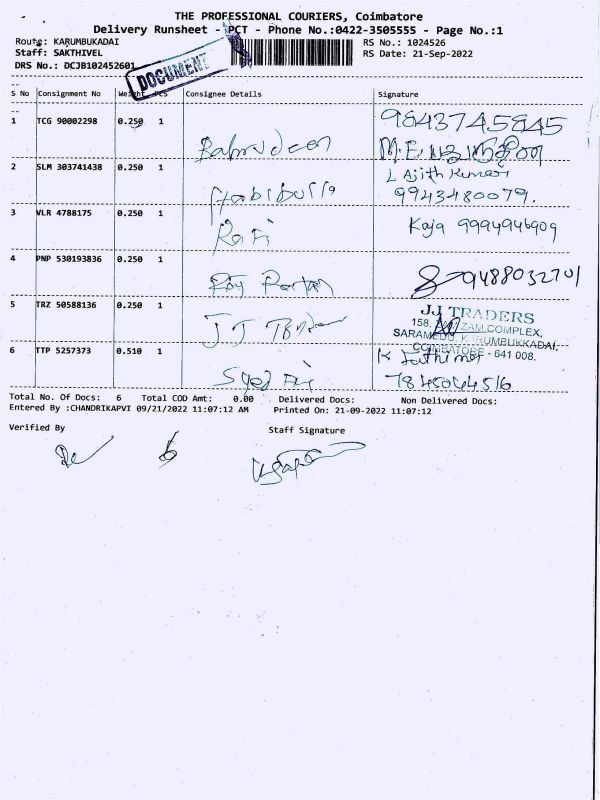 THE PROFESSIONAL COURIERS, Coimbatore
Delivery Runsheet - PCT - Phone No.:0422-3505555 - Page No.:1
Route: KARUMBUKADAI RS No.: 1024526
Staff: SAKTHIVEL RS Date: 21-Sep-2022
DRS No.: DCJB102452601
DOCUMENT
S No Consignment No Weight PCS Consignee Details Signature
1 TCG 90002298 0.250 1 9843745845
2 SLM 303741438 0.250 1 Habibulla L Ajith Kumar
9943480079.
3 VLR 4788175 0.250 1 Rafi Kaja 9994946909
4 PNP 530193836 0.250 1 9488032701
5 TRZ 50588136 0.250 1 JJ JJ TRADERS
158, AZZAM COMPLEX,
SARAMEDU, KARUMBUKKADAI,
COIMBATORE - 641 008.
6 TTP 5257373 0.510 1 Syed
Total No. Of Docs: 6 Total COD Amt: 0.00 Delivered Docs: Non Delivered Docs:
Entered By :CHANDRIKAPVI 09/21/2022 11:07:12 AM Printed On: 21-09-2022 11:07:12
Verified By Staff Signature